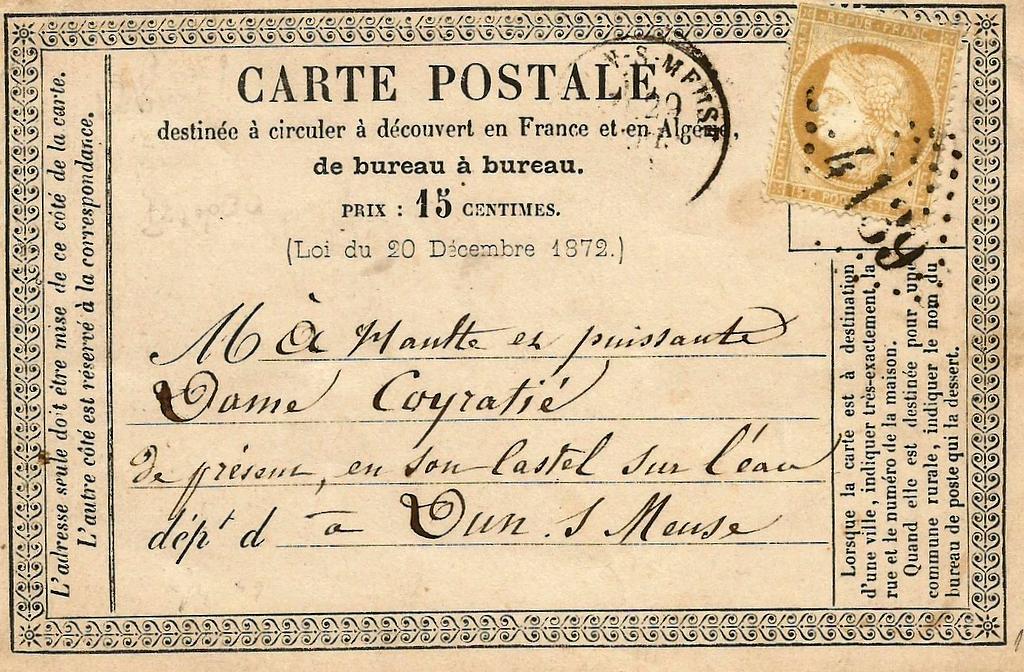 CARTE POSTALE
destinée à circuler à découvert en France et en Algérie,
de bureau à bureau.
PRIX : 15 CENTIMES.
(Loi du 20 Décembre 1872.)
N-S-MEUSE
REPUB FRANC
4129
M à Hautte et puissante
Dame Coyratié
de présent, en son Castel sur l'éau
dépt d à Dun S Meuse
L'adresse seule doit être mise de ce côté de la carte.
L'autre côté est réservé à la correspondance.
Lorsque la carte est à destination
d'une ville, indiquer très-exactement la
rue et le numéro de la maison.
Quand elle est destinée pour une
commune rurale, indiquer le nom du
bureau de poste qui la dessert.